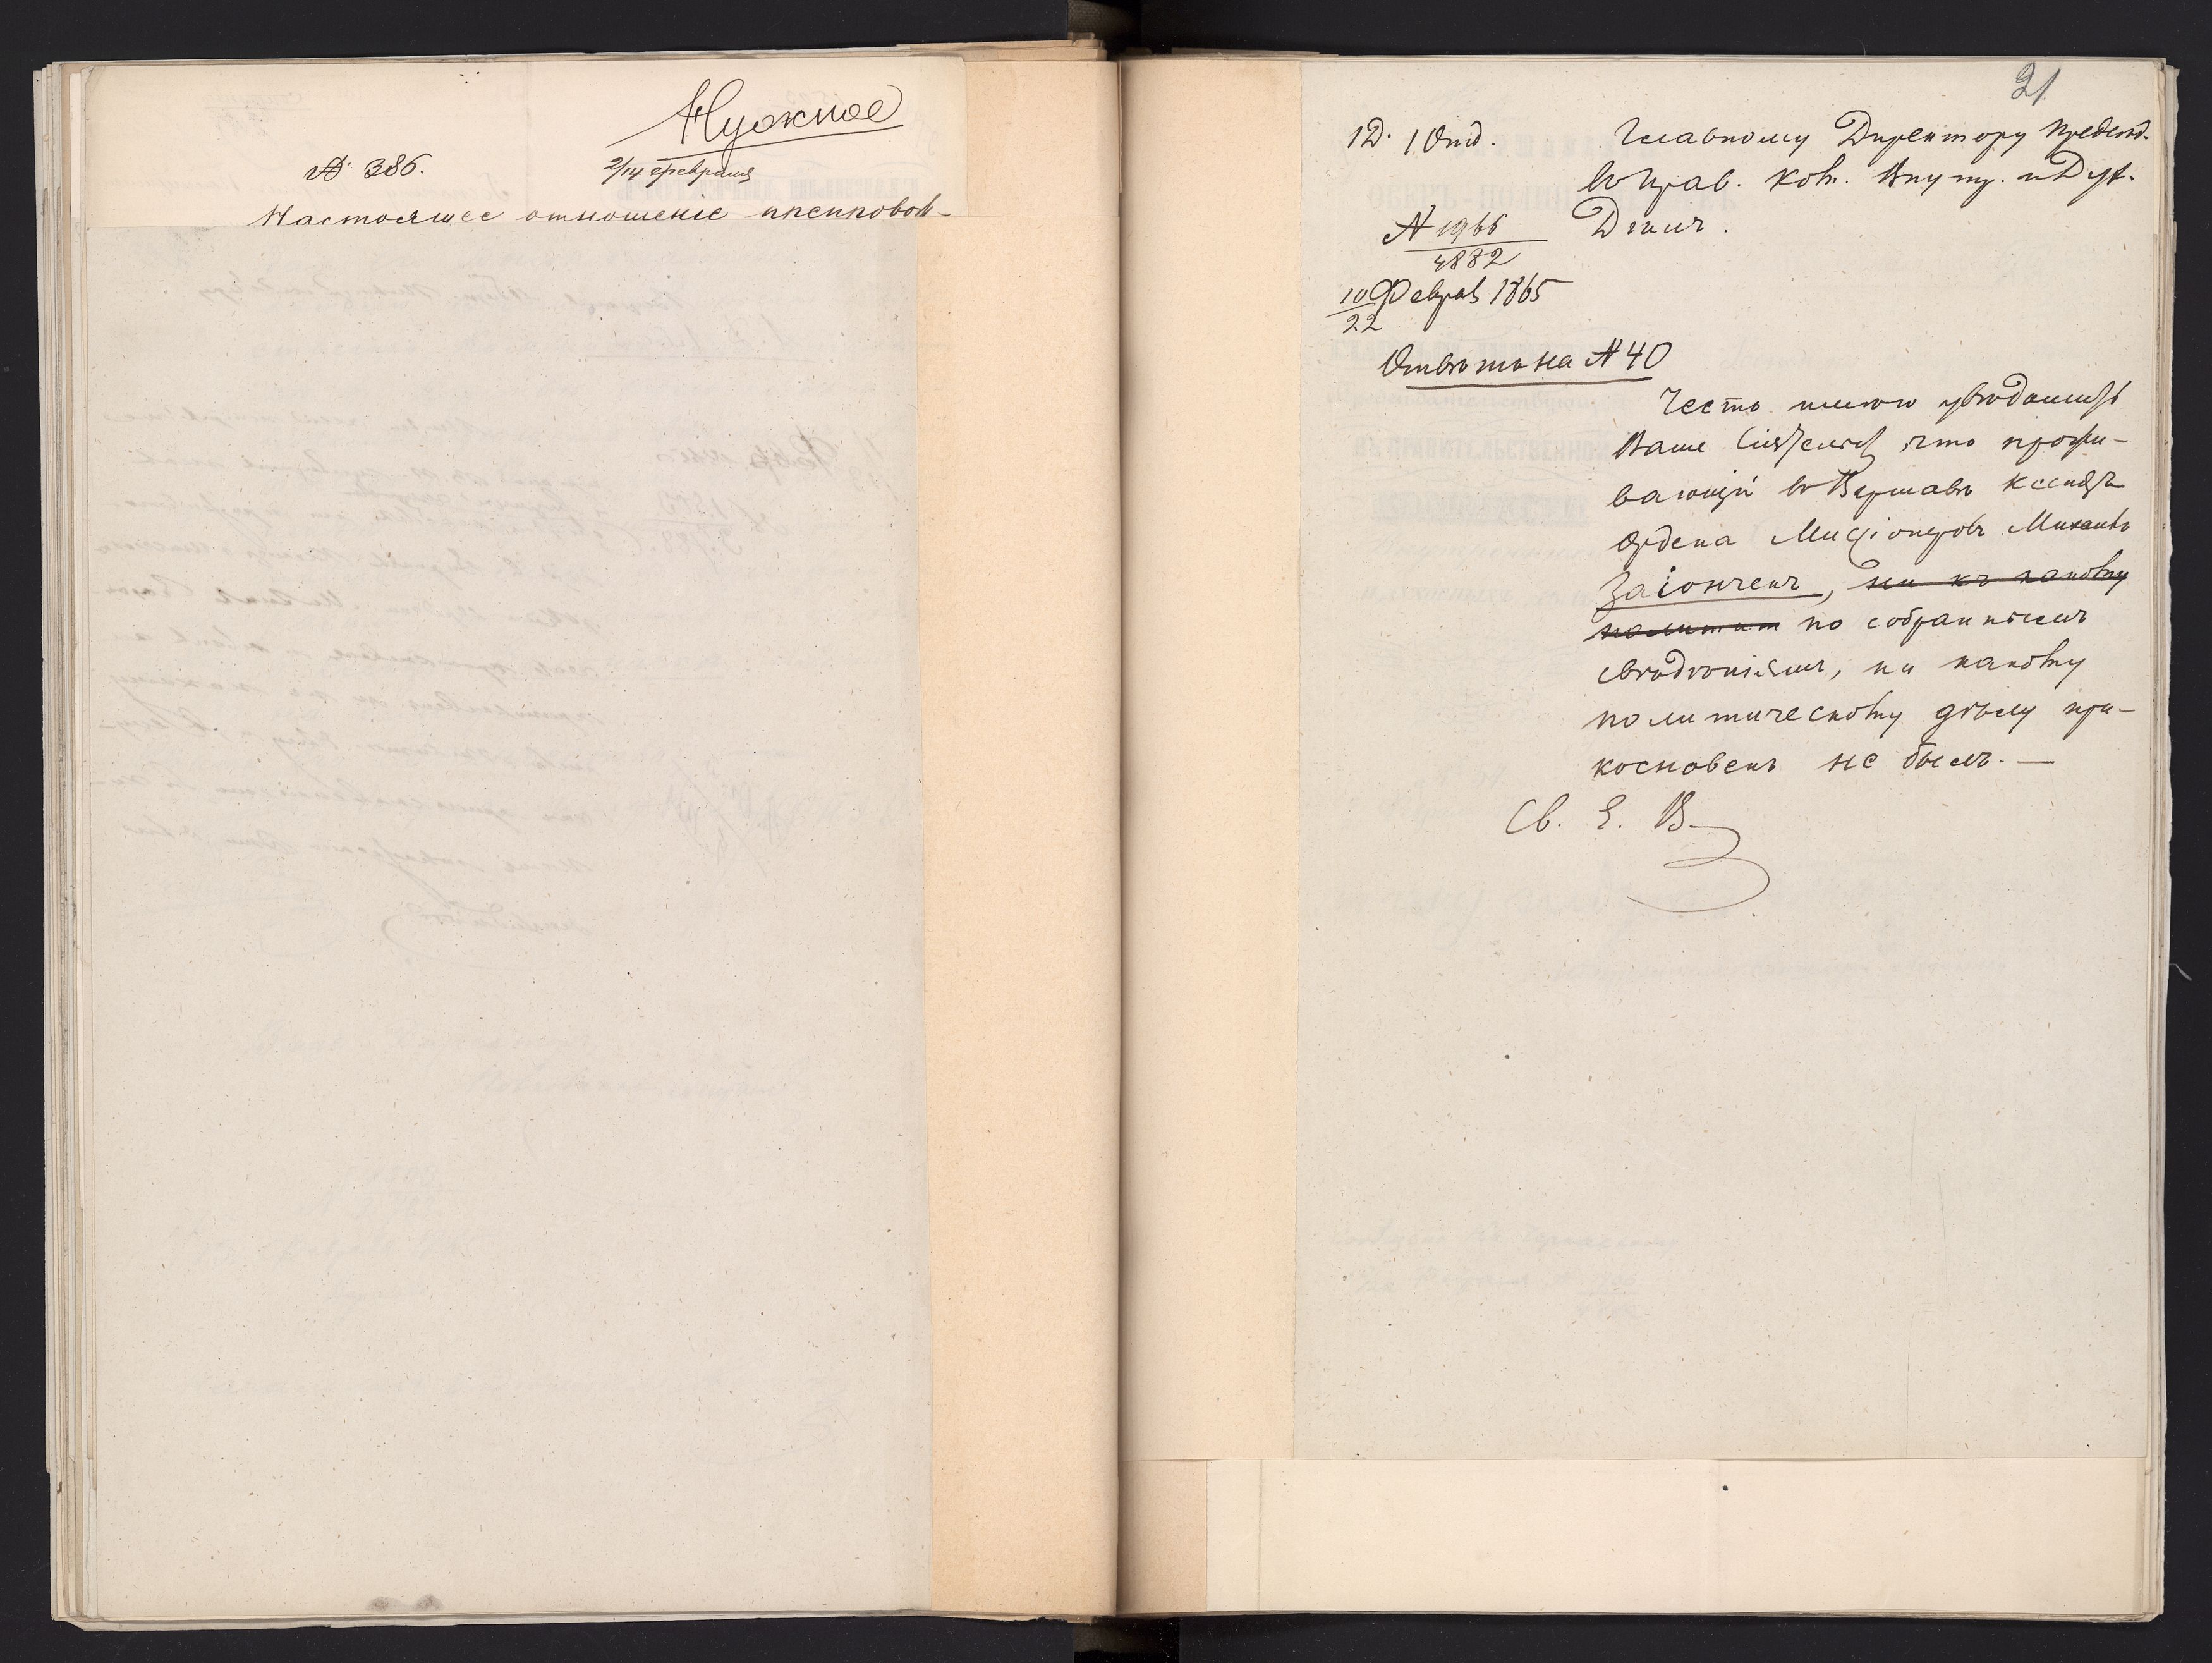 Нужное
№ 386.
2/14 февраля
Настоящее отношеніе препровож-
21
1 Д. 1 Отд.
Главному Директору Председ.
въ Прав. Ком. Внутр. и Дух.
Дѣлъ.
№ 1966
4882
10 Февраля 1865
22
Отвѣтъ на № 40
Честь имѣю увѣдомить
Ваше Сіятельств, что прожи-
вающій въ Варшавѣ Ксендзъ
Ордена Миссіонеровъ Михаилъ
Заіончекъ, ни къ какому
политич по собраннымъ
свѣдѣніямъ, ни какому
политическому дѣлу при-
косновенъ не былъ. —
Св. Е. В.